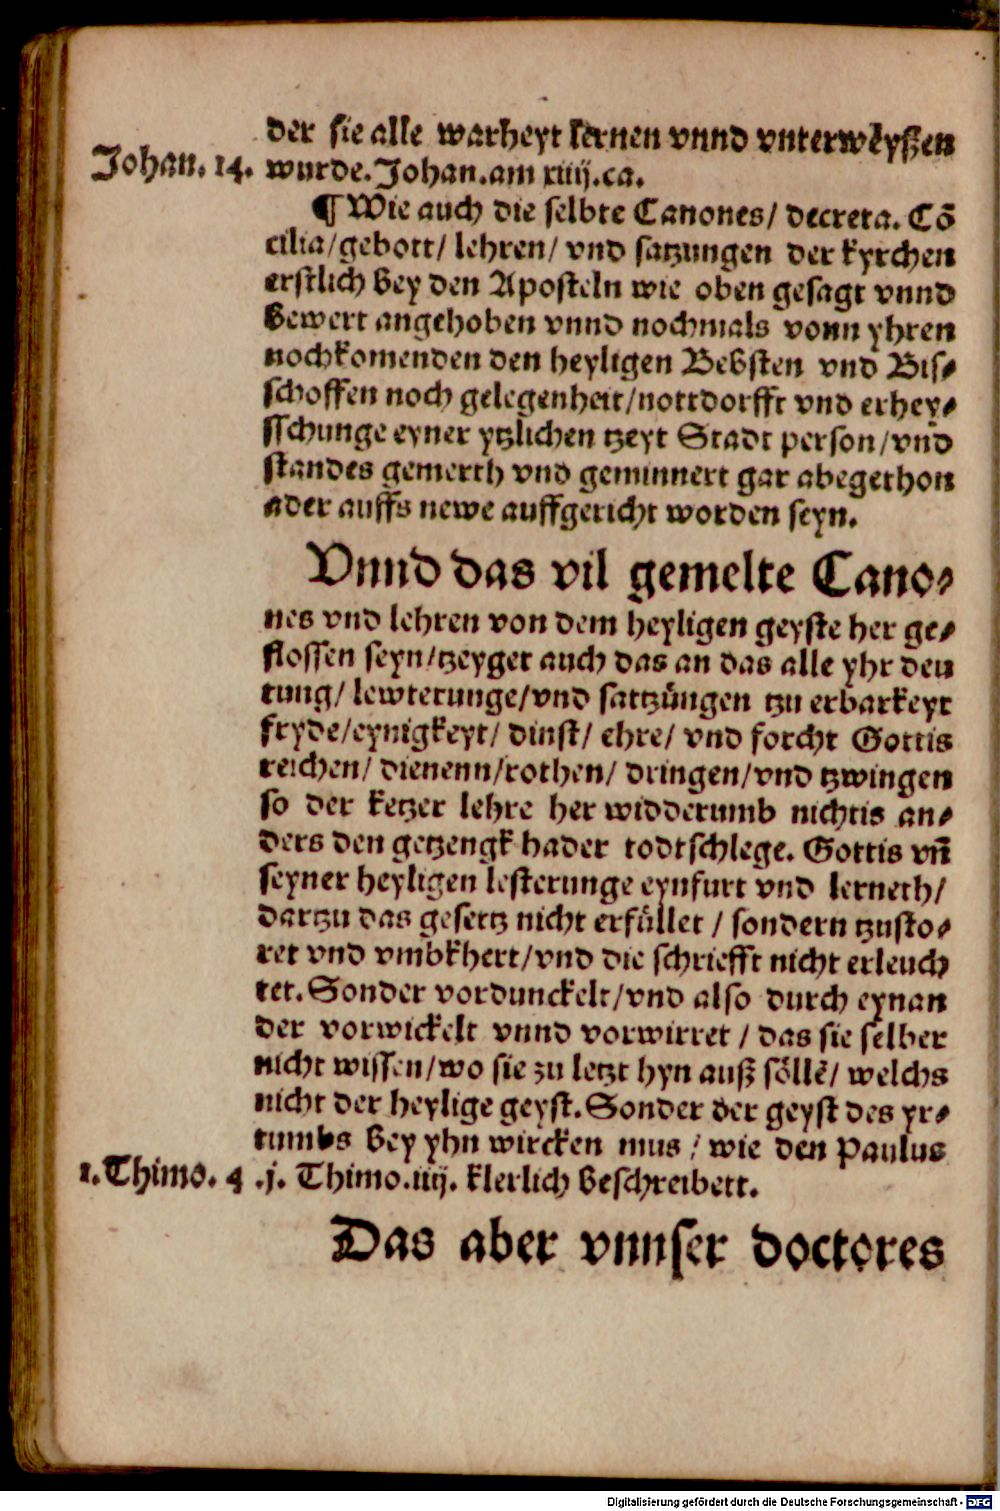 der sie alle warheyt lernen vnnd vnterwëyszen
Johan. 14. wurde. Johan. am xiiij. ca.
¶ Wie auch die selbte Canones/ decreta. Cõ
cilia/gebott/ lehren/ vnd satzungen der kyrchen
erstlich bey den Aposteln wie oben gesagt vnnd
bewert angehoben vnnd nochmals vonn yhren
nochkomenden den heyligen Bebsten vnd Bis⸗
schoffen noch gelegenheit/nottdorfft vnd erhey⸗
sschunge eyner ytzlichen tzeyt Stadt person/vnd
standes gemerth vnd geminnert gar abegethon
ader auffs newe auffgericht worden seyn.
Vnnd das vil gemelte Cano⸗
nes vnd lehren von dem heyligen geyste her ge⸗
flossen seyn/tzeyget auch das an das alle yhr deu
tung/ lewterunge/vnd sattzůngen tzu erbarkeyt
fryde/eynigkeyt/ dinst/ ehre/ vnd forcht Gottis
reichen/ dienenn/rothen/ dringen/vnd tzwingen
so der ketzer lehre her widderumb nichtis an⸗
ders den getzengk hader todtschlege. Gottis vñ
seyner heyligen lesterunge eynfurt vnd lerneth/
dartzu das gesetz nicht erfůllet / sondern tzusto⸗
ret vnd vmbkhert/vnd die schriefft nicht erleuch
tet. Sonder vordunckelt/vnd also durch eynan
der vorwickelt vnnd vorwirret / das sie selber
nicht wissen/wo sie zu letzt hyn auß söllẽ/ welchs
nicht der heylige geyst. Sonder der geyst des yr⸗
tumbs bey yhn wircken mus / wie den Paulus
1. Thimo. 4 .j. Thimo. iiij. klerlich beschreibett.
Das aber vnnser doctores
Digitalisierung gefördert durch die Deutsche Forschungsgemeinschaft - DFG